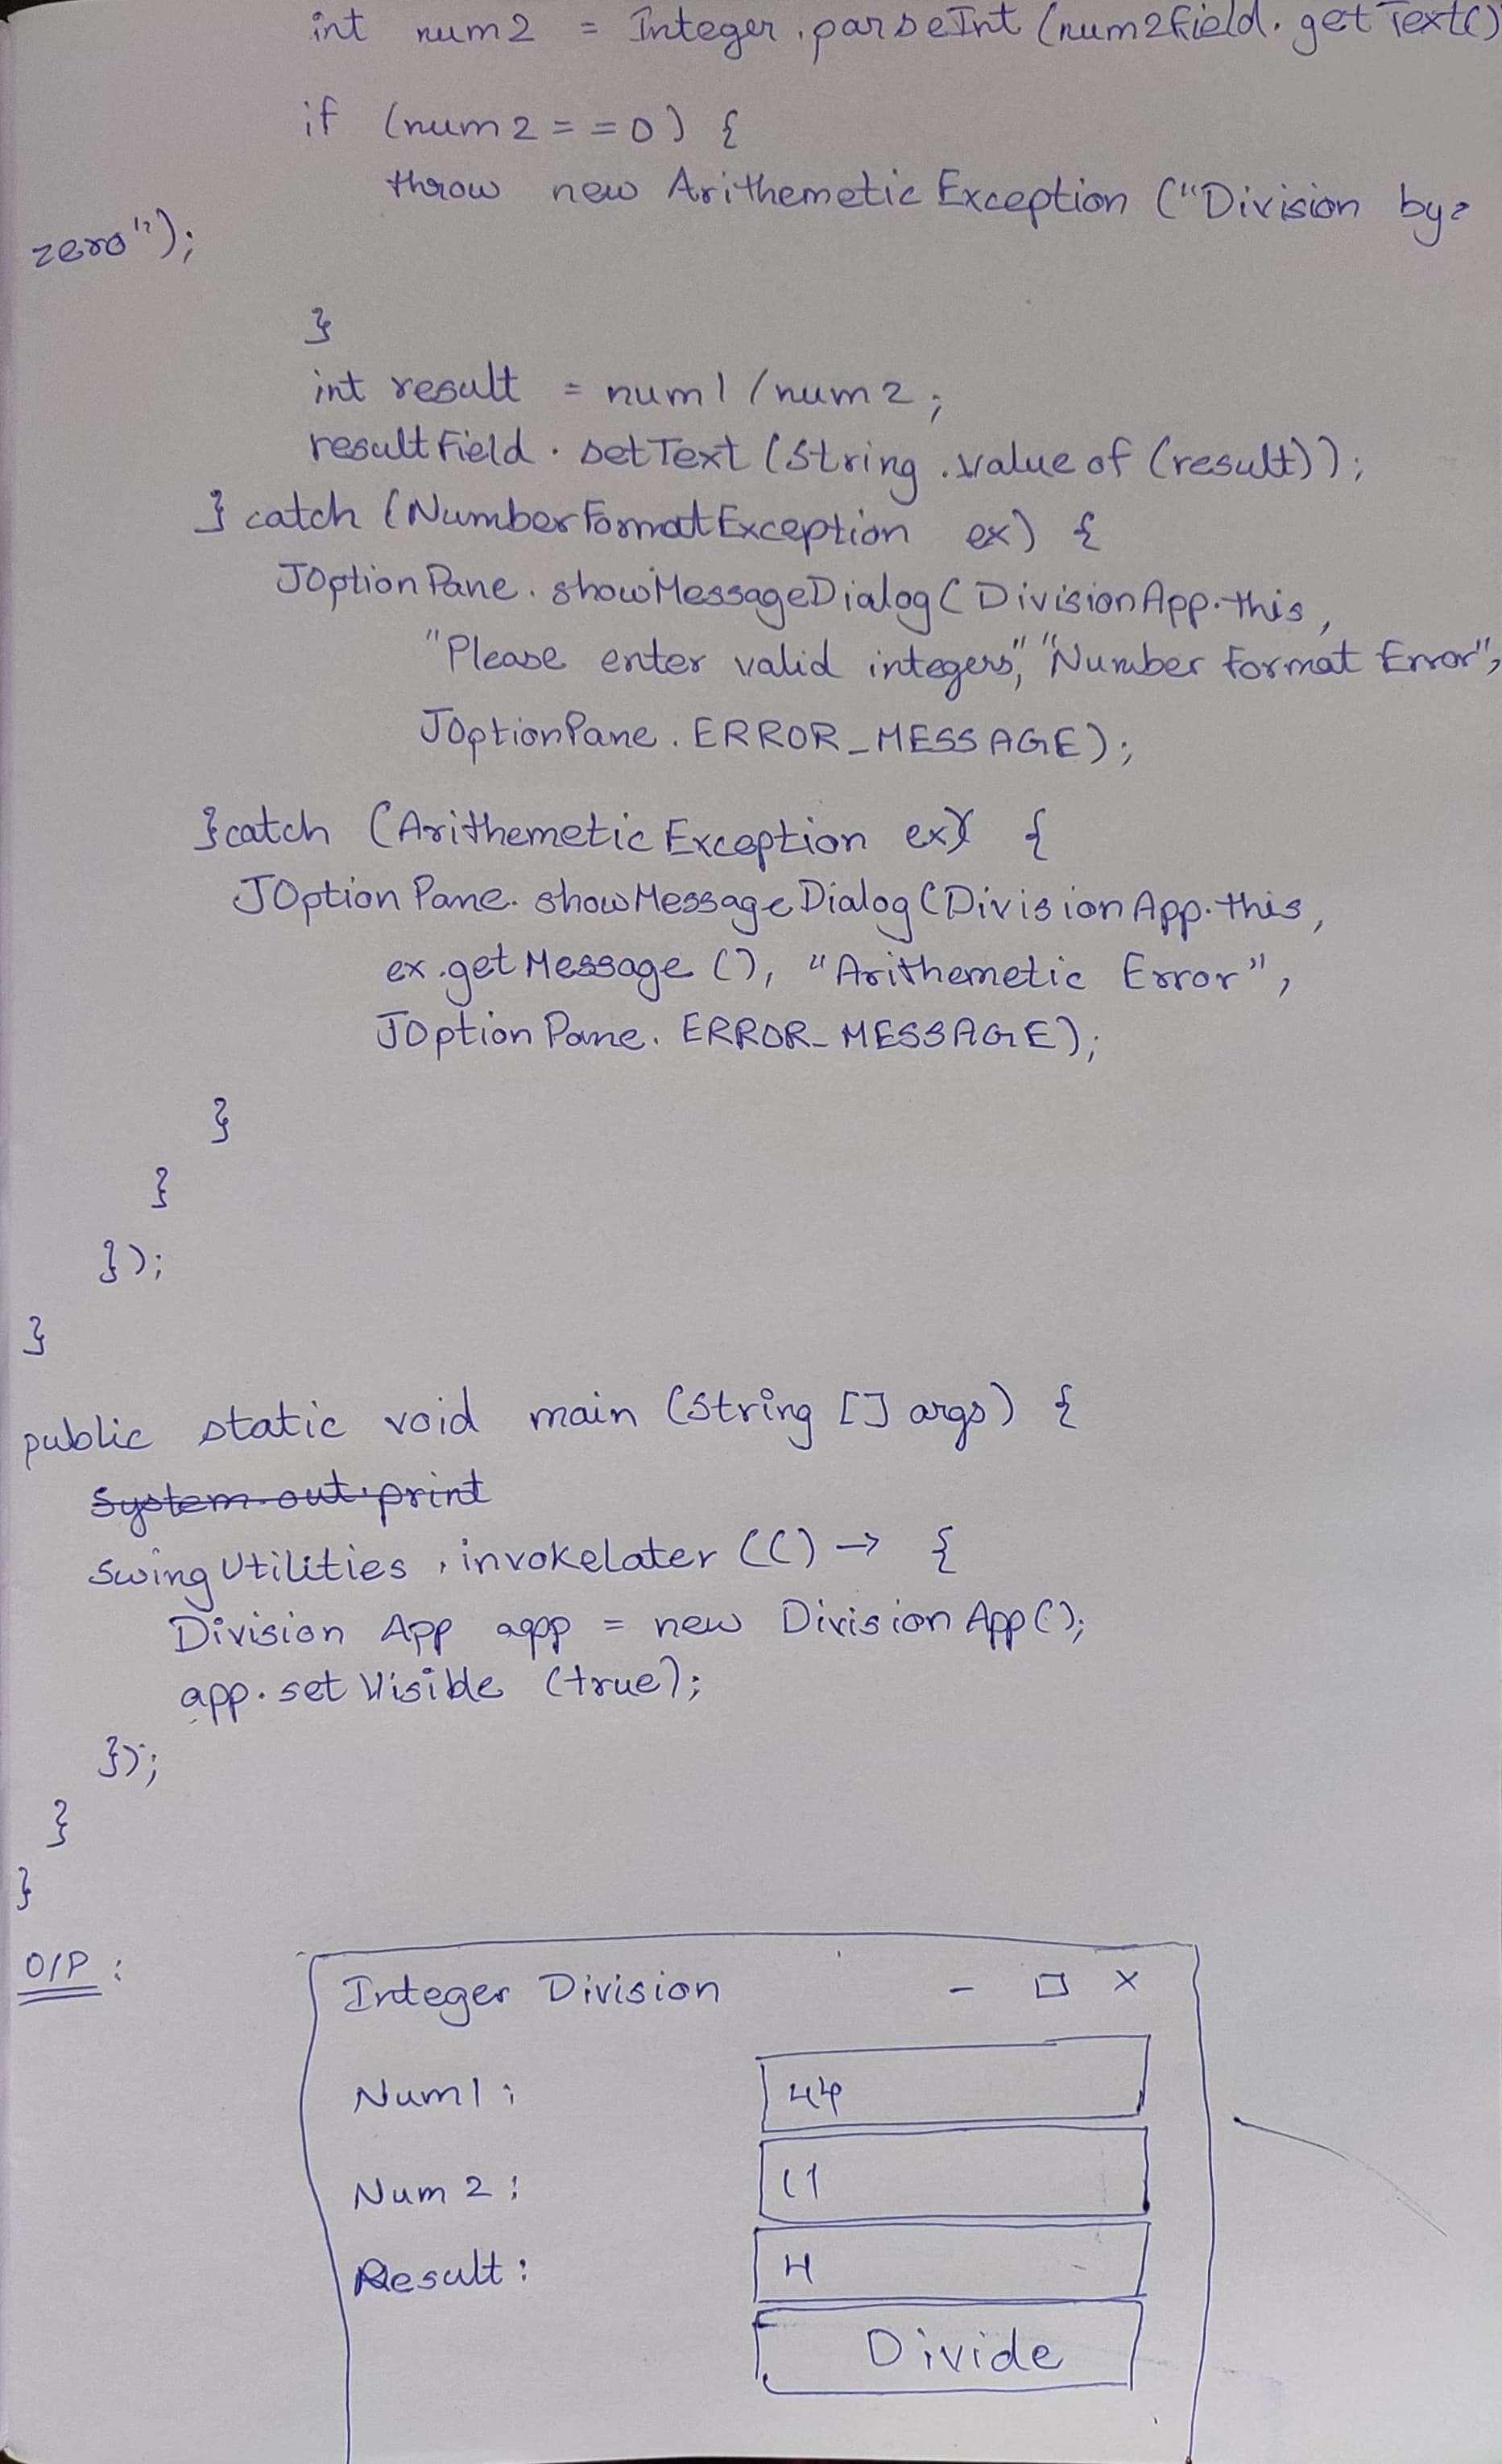 int num2 = Integer.parseInt (num2Field.getText()
if (num2 == 0) {
throw new ArithemeticException ("Division by
zero");
}
int result = num1/num2;
resultField.setText (String.valueof (result));
} catch (NumberFormatException ex) {
JOptionPane.showMessageDialog(DivisionApp.this,
"Please enter valid integers", "Number Format Error",
JOptionPane.ERROR_MESSAGE);
}catch (ArithemeticException ex) {
JOptionPane.showMessageDialog(DivisionApp.this,
ex.getMessage(), "Arithemetic Error",
JOptionPane.ERROR_MESSAGE);
}
}
});
}
public static void main (String [] args) {
System.out.print
SwingUtilities.invokelater (() → {
Division App app = new DivisionApp();
app.setVisible (true);
});
}
}
O/P :
Integer Division - □ X
Num1 : 44
Num 2 : 11
Result : 4
Divide